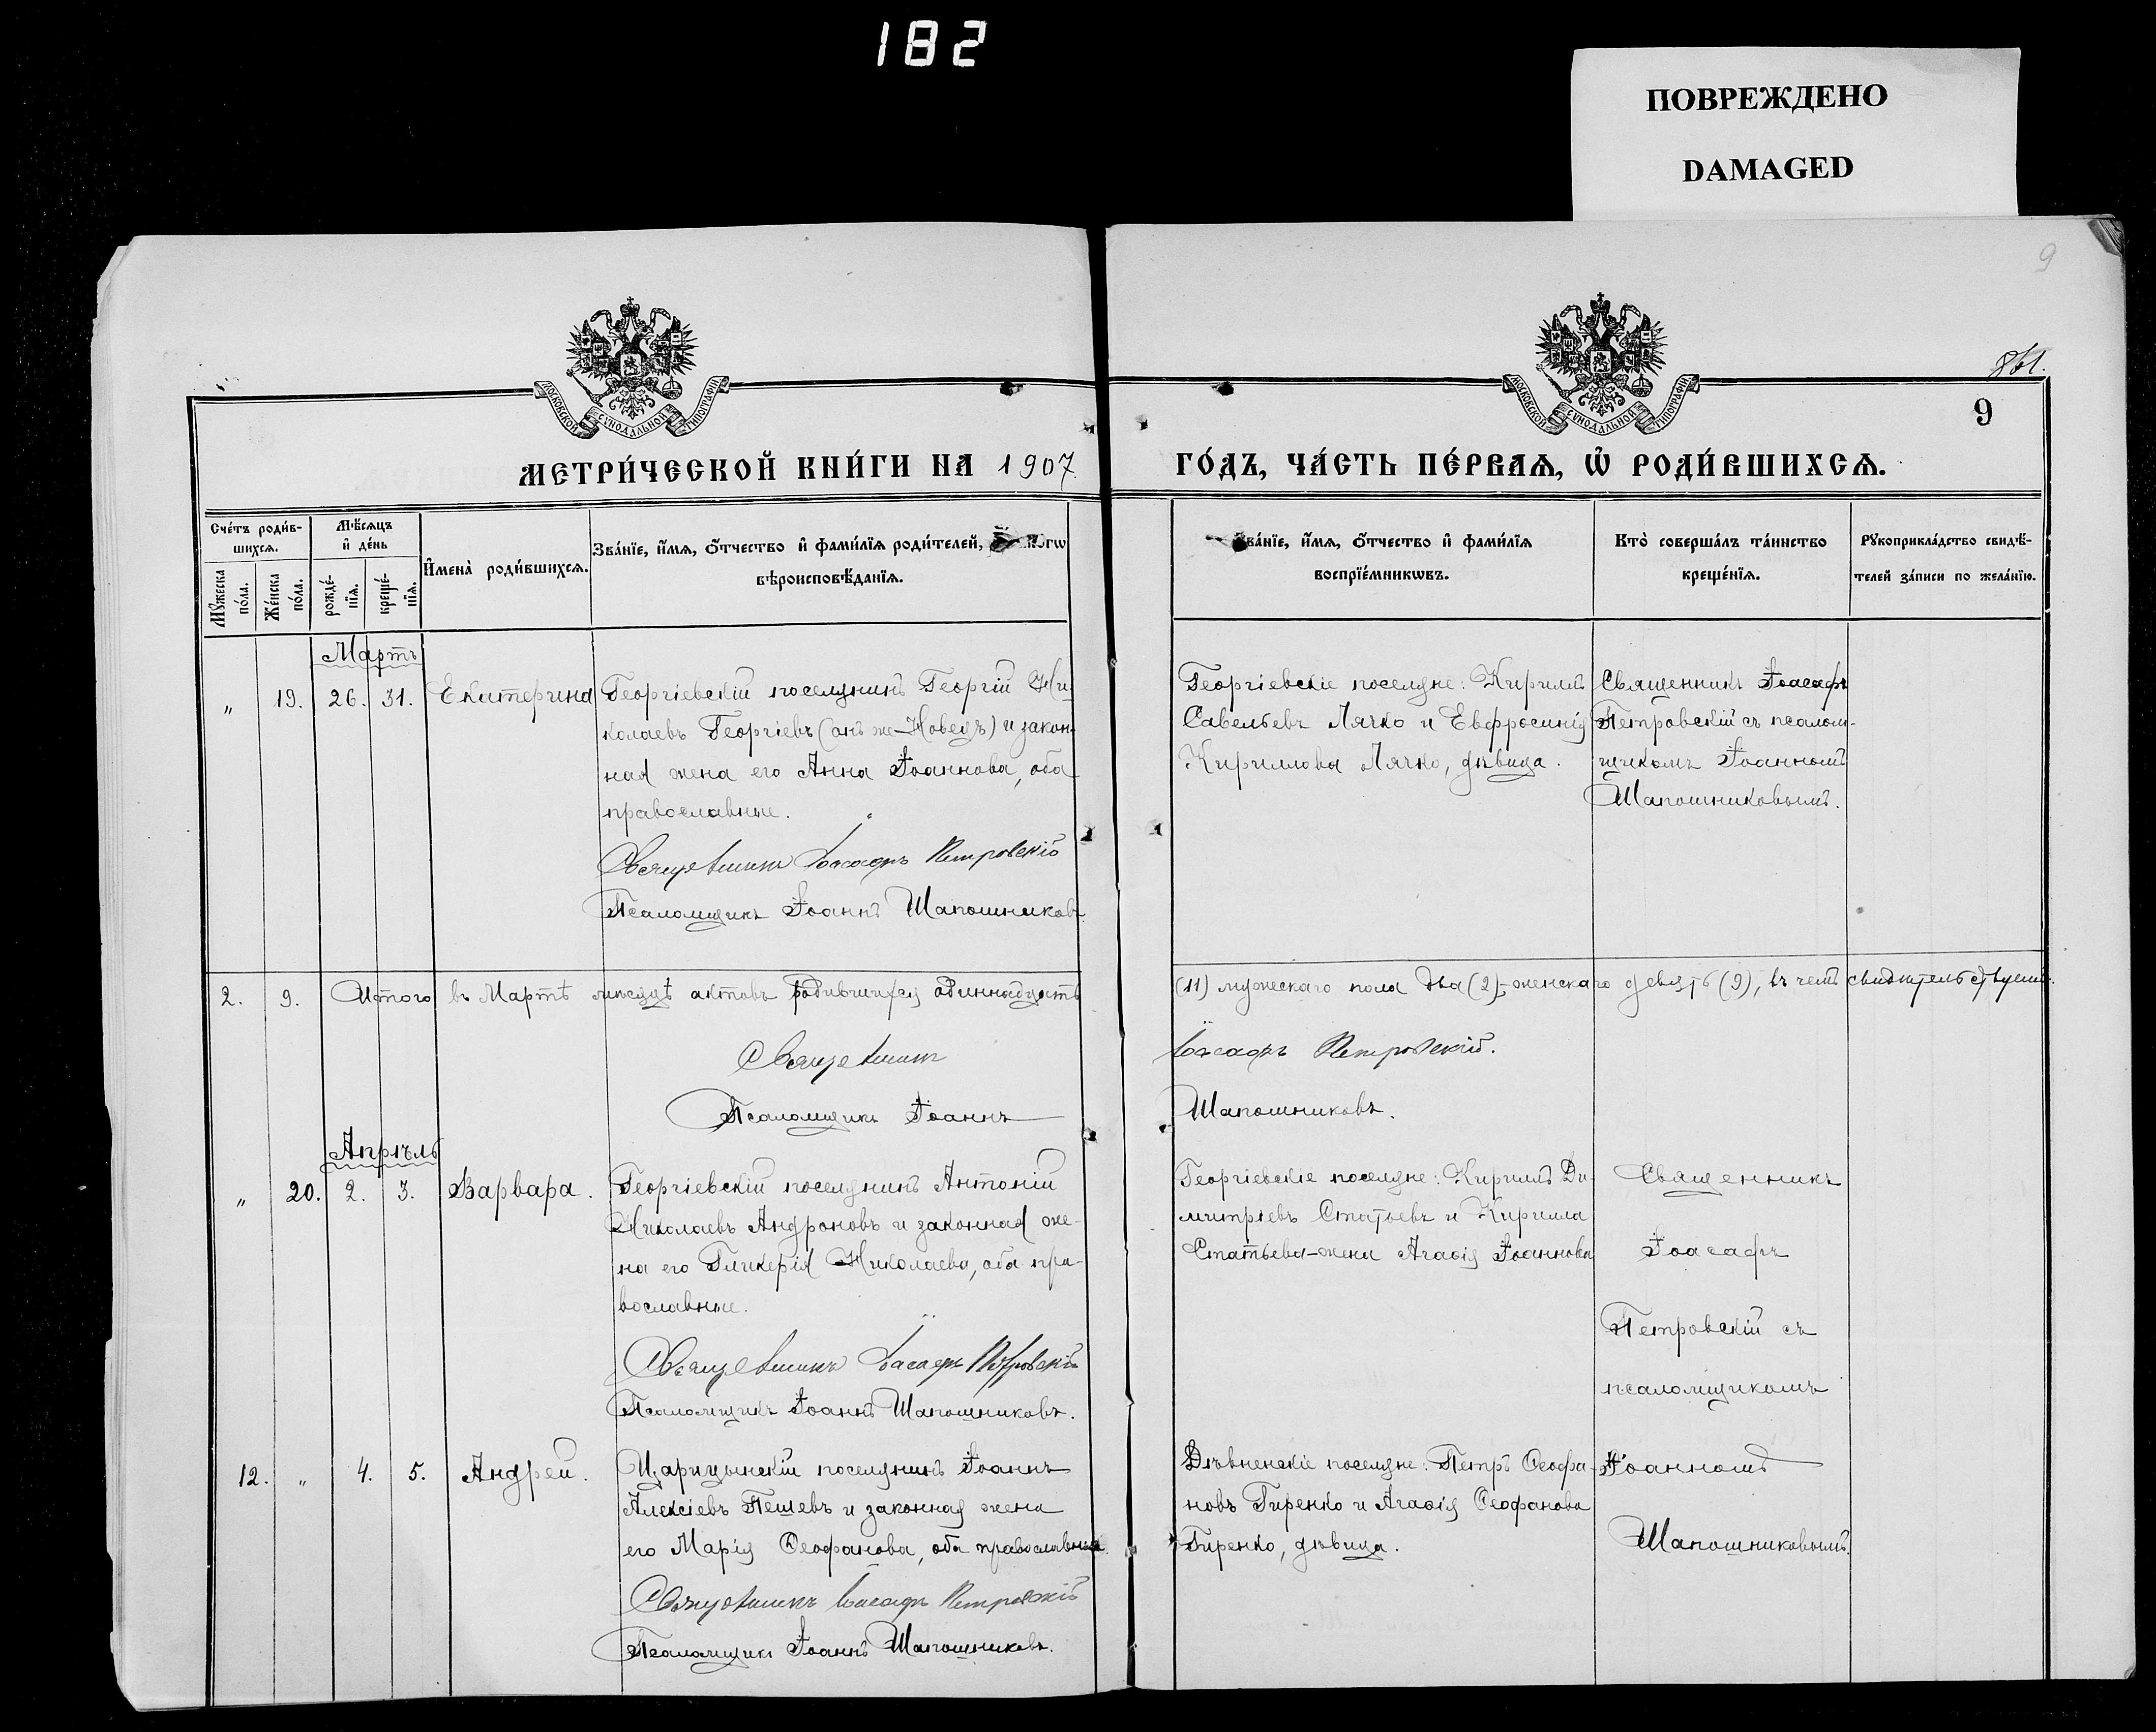 182
ПОВРЕЖДЕНО
DAMAGED
9
МОСКОВСКОЙ СѴНОДАЛЬНОЙ ТИПОГРАФІИ
МОСКОВСКОЙ СѴНОДАЛЬНОЙ ТИПОГРАФІИ
9
МЕТРИ́ЧЕСКОЙ КНИ́ГИ НА 1907
ГО́ДЪ, ЧА́СТЬ ПЕ́РВАѦ, Ѡ҆ РОДИ́ВШИХСѦ.
Сче́тъ роди́вшихсѧ.
Мꙋ́жеска по́ла.
Же́нска по́ла.
Мѣ́сѧцъ и҆ де́нь
рожде́нїѧ.
креще́нїѧ.
И҆мена̀ роди́вшихсѧ.
Зва́нїе, и҆́мѧ, ѻ҆́тчество и҆ фами́лїѧ роди́телей,
вѣроисповѣ́данїѧ.
Зва́нїе, и҆́мѧ, ѻ҆́тчество и҆ фами́лїѧ
воспрїе́мникѡвъ.
Кто̀ соверша́лъ та́инство
креще́нїѧ.
Рꙋкоприкла́дство свидѣ́телей за́писи по жела́нїю.
Мартъ
" 19. 26. 31. Екатерина
Георгіевскій поселянинъ Георгій Ни-
колаевъ Георгіевъ (онъ же Новецъ) и закон-
ная жена его Анна Іоаннова, оба
православные.
Священникъ Іоасафъ Петровскій
Псаломщикъ Іоаннъ Шапошниковъ.
Георгіевскіе поселяне: Кириллъ
Савельевъ Лячко и Евфросинія
Кириллова Лячко, дѣвица.
Священникъ Іоасафъ
Петровскій съ псалом-
щикомъ Іоанномъ
Шапошниковымъ.
2. 9. Итого въ Мартѣ мѣсяцѣ актовъ родившихся одиннадцать (11) мужескаго пола два (2), женскаго девять (9), въ чемъ свидѣтельствуемъ.
Священникъ Іоасафъ Петровскій.
Псаломщикъ Іоаннъ Шапошниковъ.
Апрѣль
" 20. 2. 3. Варвара.
Георгіевскій поселянинъ Антоній
Николаевъ Андроновъ и законная же-
на его Гликерія Николаева, оба пра-
вославные.
Священникъ Іоасафъ Петровскій
Псаломщикъ Іоаннъ Шапошниковъ.
Георгіевскіе поселяне: Кириллъ Ди-
митріевъ Статьевъ и Кирилла
Статьева жена Агаѳія Іоаннова
Священникъ
Іоасафъ
Петровскій съ
псаломщикомъ
12. " 4. 5. Андрей.
Царицынскій поселянинъ Іоаннъ
Алексіевъ Пешевъ и законная жена
его Марія Ѳеофанова, оба православные.
Священникъ Іоасафъ Петровскій
Псаломщикъ Іоаннъ Шапошниковъ.
поселяне: Петръ Ѳеофа-
новъ Гиренко и Агаѳія Ѳеофанова
Гиренко, дѣвица.
Іоанномъ
Шапошниковымъ.